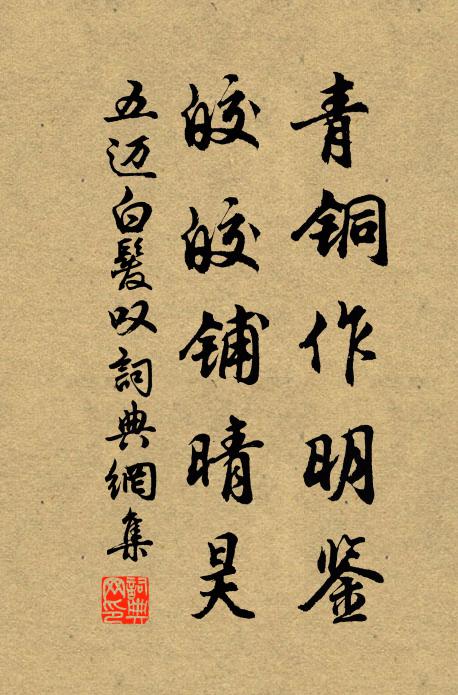 青铜作明鉴
皎皎铺晴昊
五迈白髮叹詞典網集
詞典网印